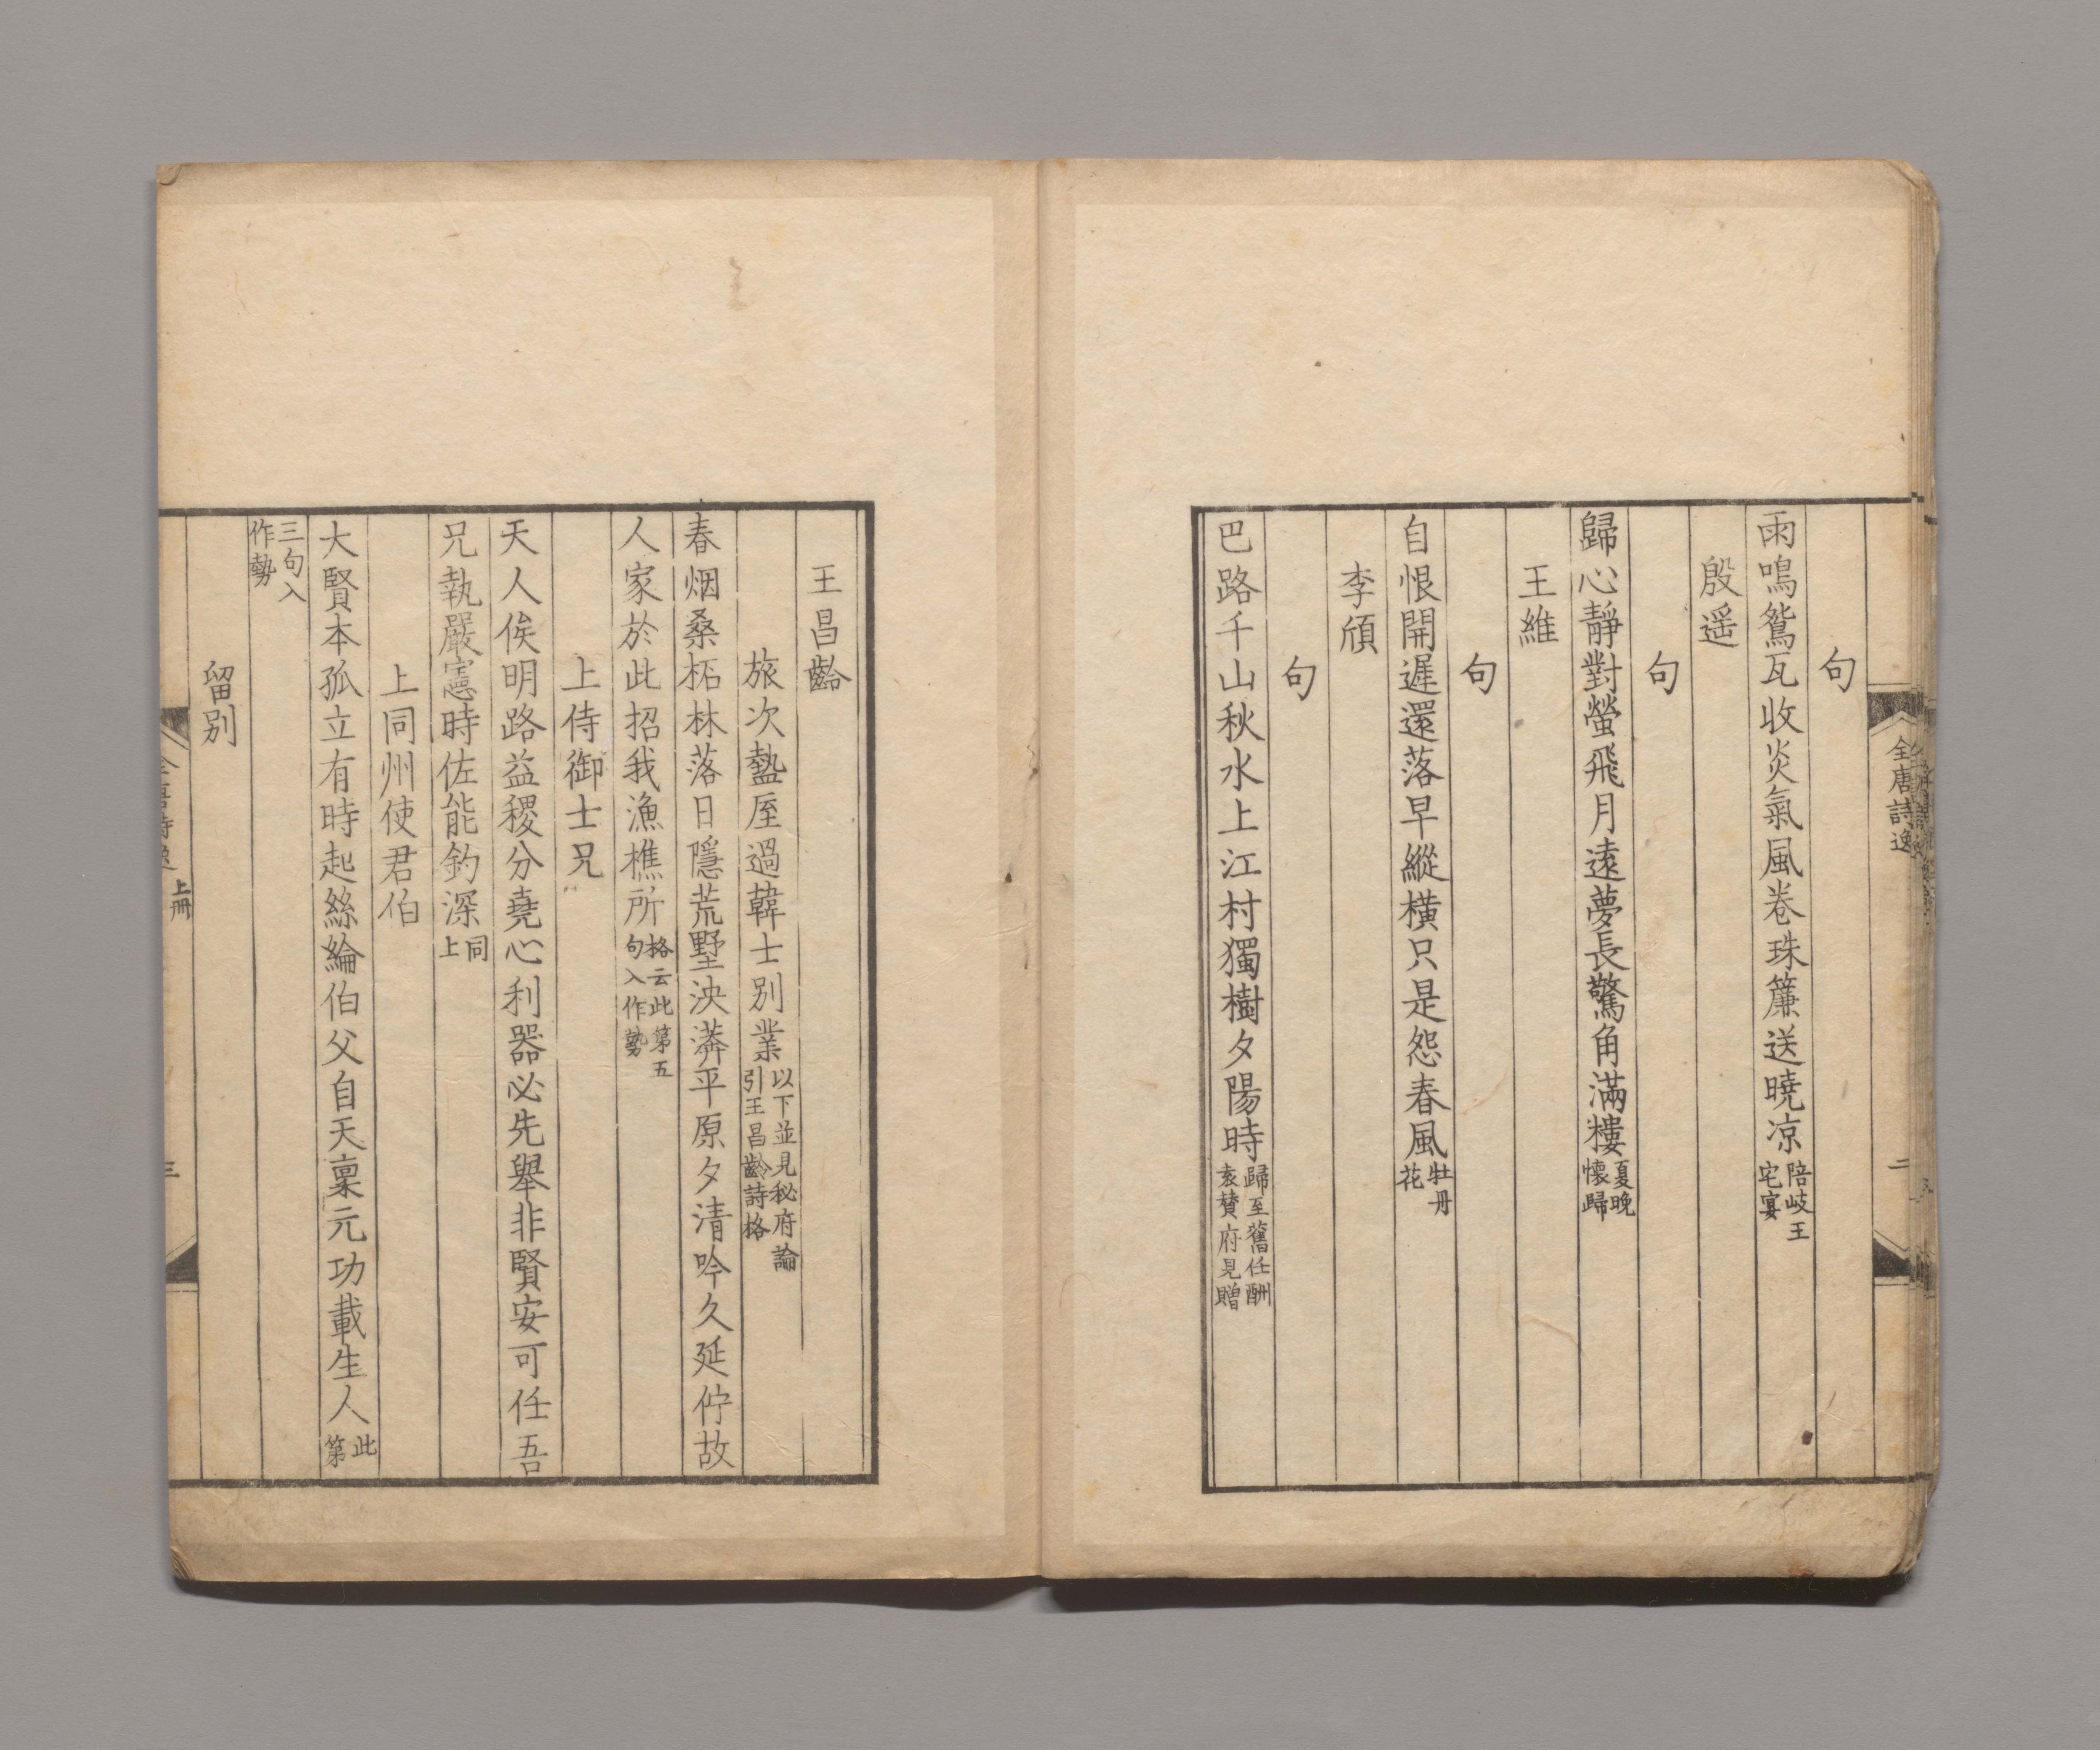 全唐詩逸
二
句
雨鳴鴛瓦收炎氣風卷珠簾送曉凉陪岐王宅宴
殷遥
句
歸心靜對螢飛月遠夢長驚角滿樓夏晚懷歸
王維
句
自恨開遲還落早縱橫只是怨春風牡丹花
李頎
句
巴路千山秋水上江村獨樹夕陽時歸至舊任酬袁贊府見贈
王昌齡
旅次盩厔過韓士別業以下並見秘府論引王昌齡詩格
春烟桑柘林落日隱荒墅泱漭平原夕清吟久延佇故
人家於此招我漁樵所格云此第五句入作勢
上侍御士兄
天人俟明路益稷分堯心利器必先舉非賢安可任吾
兄執嚴憲時佐能釣深同上
上同州使君伯
大賢本孤立有時起絲綸伯父自天稟元功載生人此第
三句入作勢
留別
上冊
三